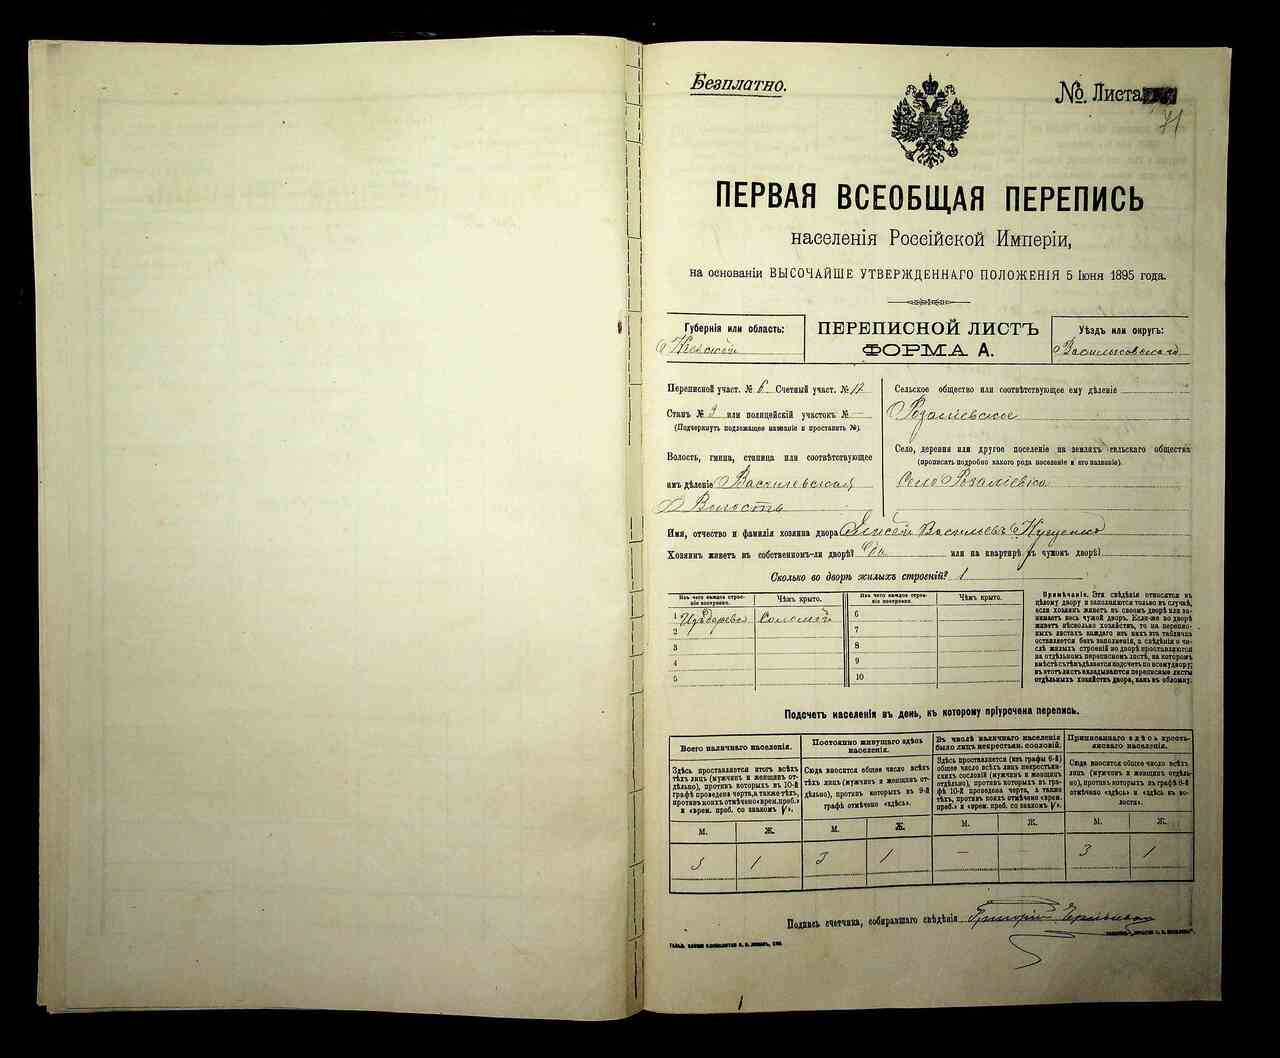 Безплатно.
№ Листа
71
ПЕРВАЯ ВСЕОБЩАЯ ПЕРЕПИСЬ
населенія Россійской Имперіи,
на основаніи ВЫСОЧАЙШЕ УТВЕРЖДЕННАГО ПОЛОЖЕНІЯ 5 Іюня 1895 года.
Губернія или область:
Кіевской
ПЕРЕПИСНОЙ ЛИСТЪ
ФОРМА А.
Уѣздъ или округъ:
Васильковскаго
Переписной участ. № 6 Счетный участ. № 12
Станъ № 3 или полицейскій участокъ № —
(Подчеркнуть подлежащее названіе и проставить №).
Волость, гмина, станица или соотвѣтствующее
имъ дѣленіе Василевская
Волость
Сельское общество или соотвѣтствующее ему дѣленіе
Розаліевское
Село, деревня или другое поселеніе на земляхъ сельскаго общества
(прописать подробно какого рода поселеніе и его названіе).
Село Розаліевка
Имя, отчество и фамилія хозяина двора Елисей Васильевъ Куценко
Хозяинъ живетъ въ собственномъ-ли дворѣ? Да или на квартирѣ въ чужомъ дворѣ?
Сколько во дворѣ жилыхъ строеній? 1
Изъ чего каждое строеніе построено. Чѣмъ крыто.
1 Изъ дерева Соломой
2
3
4
5
Изъ чего каждое строеніе построено. Чѣмъ крыто.
6
7
8
9
10
Примѣчаніе. Эти свѣдѣнія относятся къ
цѣлому двору и заполняются только въ случаѣ,
если хозяинъ живетъ въ своемъ дворѣ или занимаетъ
весь чужой дворъ. Если-же во дворѣ
живетъ нѣсколько хозяйствъ, то на переписныхъ
листахъ каждаго изъ нихъ эта табличка
оставляется безъ заполненія, а свѣдѣнія о числѣ
жилыхъ строеній во дворѣ проставляются
на отдѣльномъ переписномъ листѣ, на которомъ
вмѣстѣ съ тѣмъ дѣлается подсчетъ по всему двору;
въ этотъ листъ вкладываются переписные листы
отдѣльныхъ хозяйствъ двора, какъ въ обложку.
Подсчетъ населенія въ день, къ которому пріурочена перепись.
Всего наличнаго населенія.
Здѣсь проставляется итогъ всѣхъ
тѣхъ лицъ (мужчинъ и женщинъ отдѣльно),
противъ которыхъ въ 10-й
графѣ проведена черта, а также тѣхъ,
противъ коихъ отмѣчено «врем. преб.»
и «врем. преб. со знакомъ V».
М. Ж.
3 1
Постоянно живущаго здѣсь
населенія.
Сюда вносится общее число всѣхъ
тѣхъ лицъ (мужчинъ и женщинъ отдѣльно),
противъ которыхъ въ 9-й
графѣ отмѣчено «здѣсь».
М. Ж.
3 1
Въ числѣ наличнаго населенія
было лицъ некрестьян. сословій.
Здѣсь проставляется (изъ графы 6-й)
общее число всѣхъ лицъ некрестьянскихъ
сословій (мужчинъ и женщинъ
отдѣльно), противъ которыхъ въ графѣ
10-й проведена черта, а также
тѣхъ, противъ коихъ отмѣчено «врем.
преб.» и «врем. преб. со знакомъ V».
М. Ж.
— —
Приписаннаго здѣсь крестьянскаго
населенія.
Сюда вносится общее число всѣхъ
лицъ (мужчинъ и женщинъ отдѣльно),
противъ которыхъ въ графѣ 8-й
отмѣчено «здѣсь» и «здѣсь въ волости».
М. Ж.
3 1
Подпись счетчика, собиравшаго свѣдѣнія Григорій